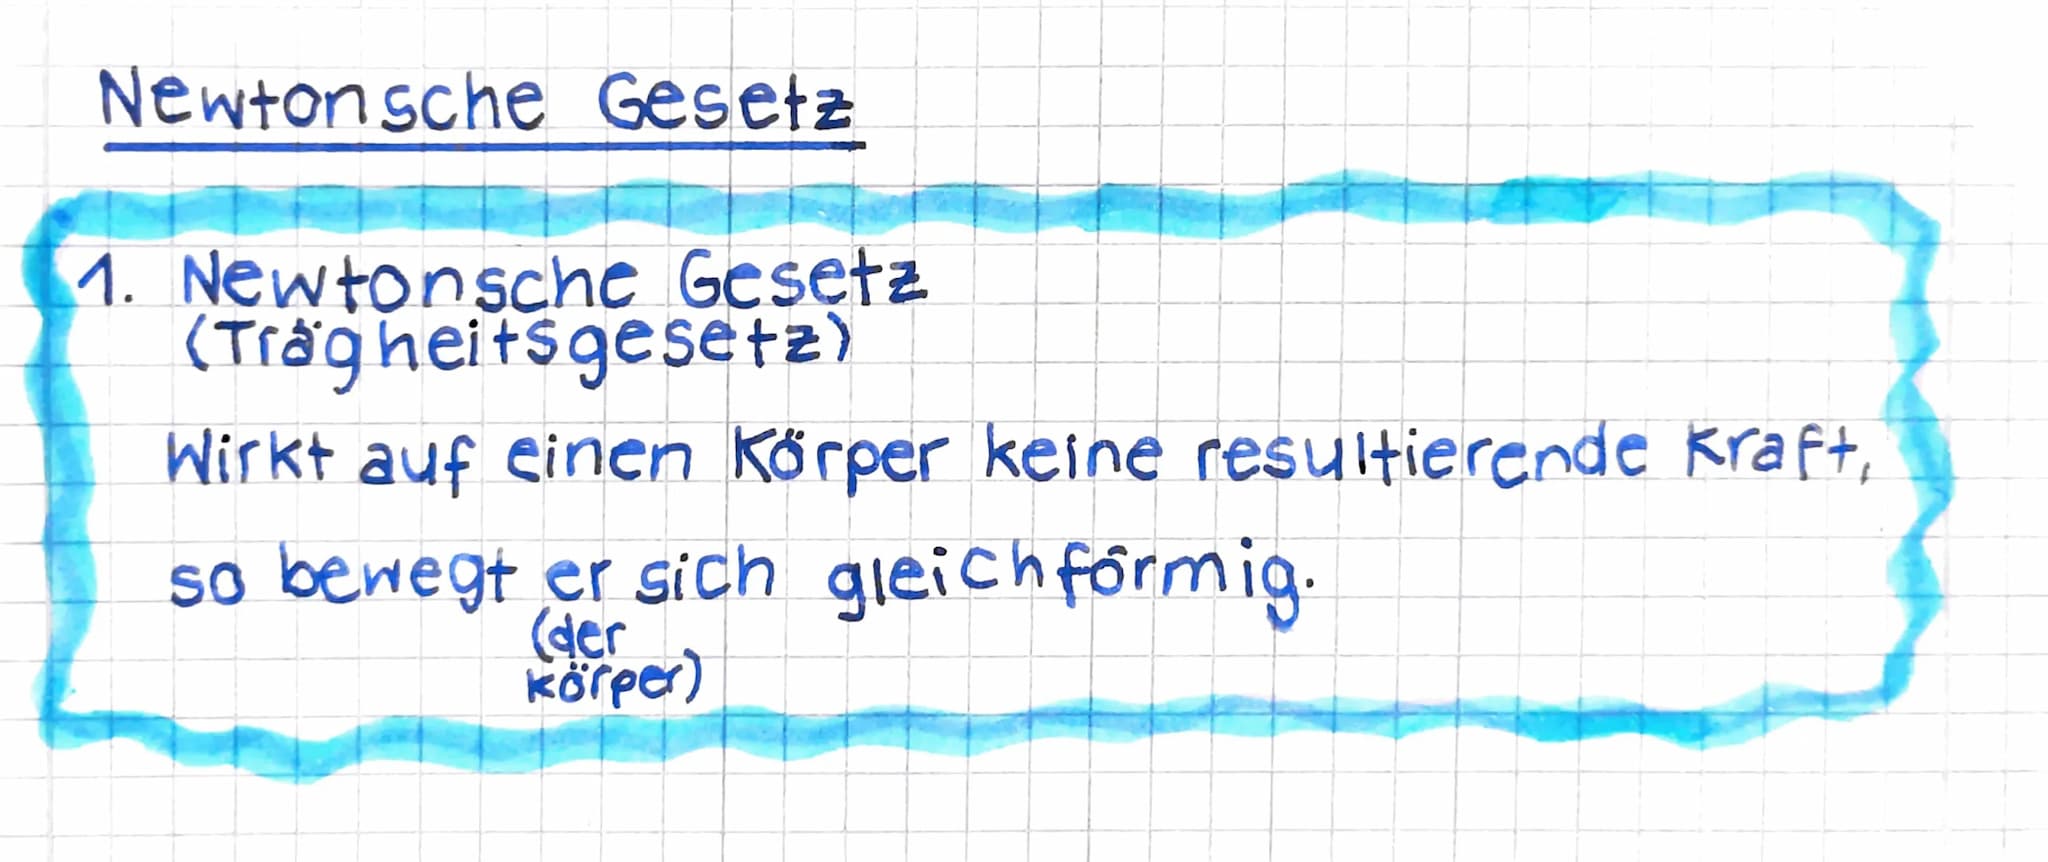 Newtonsche Gesetz
1. Newtonsche Gesetz
(Trägheitsgesetz)
Wirkt auf einen Körper keine resultierende Kraft,
so bewegt er sich gleichförmig.
(der
körper)